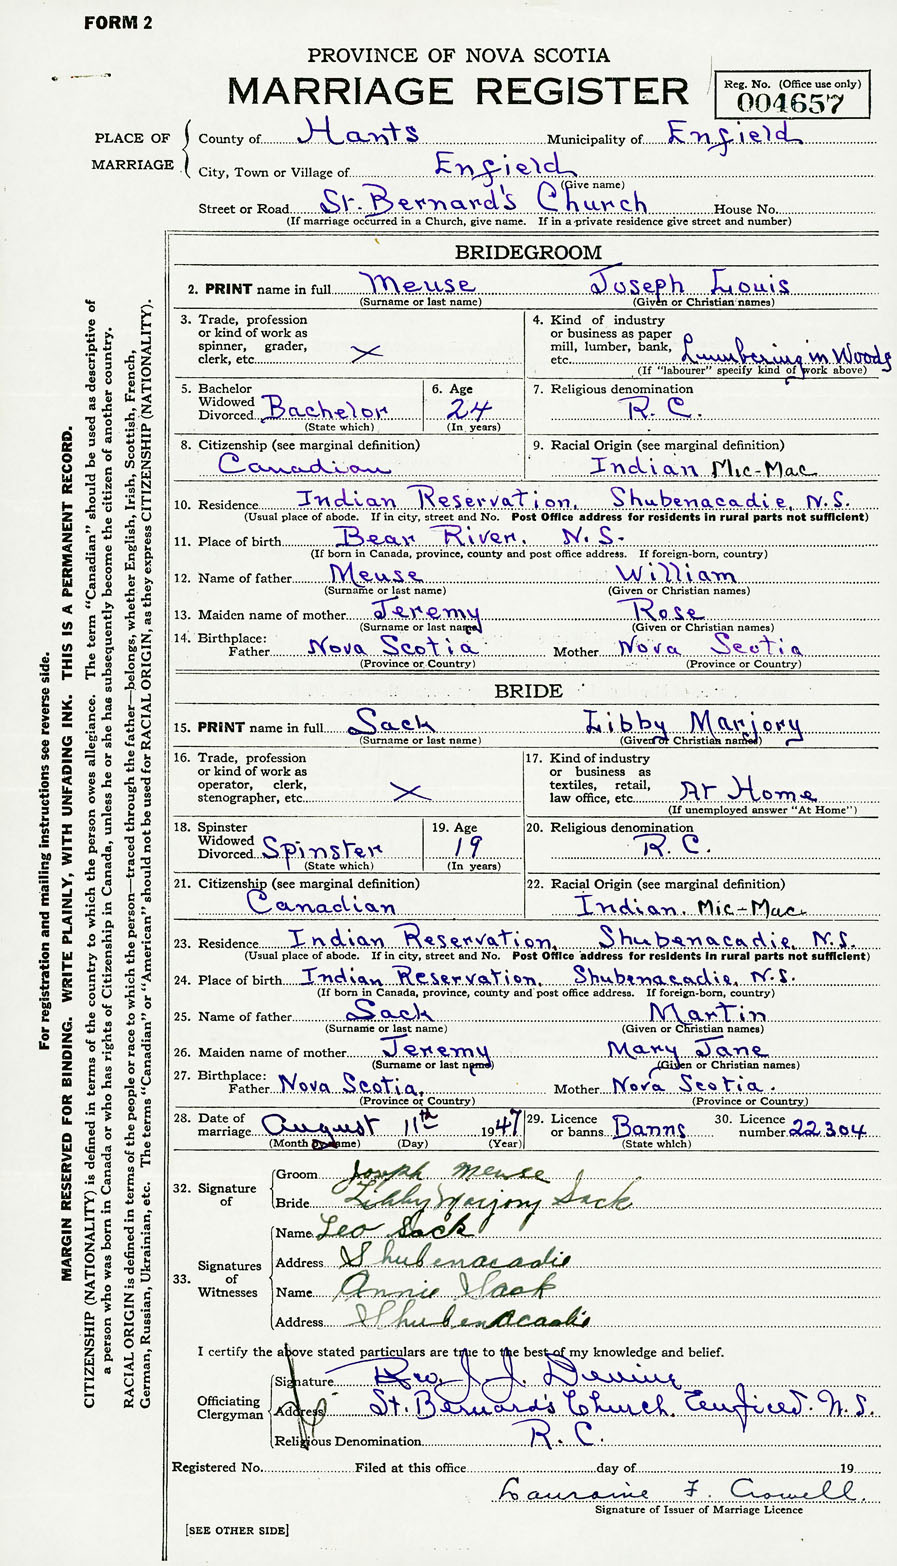 FORM 2
PROVINCE OF NOVA SCOTIA
MARRIAGE REGISTER
Reg. No. (Office use only)
004657
PLACE OF MARRIAGE
County of Hants Municipality of Enfield
City, Town or Village of Enfield
(Give name)
Street or Road St. Bernard's Church House No.
(If marriage occurred in a Church, give name. If in a private residence give street and number)
BRIDEGROOM
2. PRINT name in full Meuse Joseph Louis
(Surname or last name) (Given or Christian names)
3. Trade, profession or kind of work as spinner, grader, clerk, etc. X
4. Kind of industry or business as paper mill, lumber, bank, etc. Lumbering in Woods
(If "labourer" specify kind of work above)
5. Bachelor Widowed Divorced Bachelor
(State which)
6. Age 24
(In years)
7. Religious denomination
R.C.
8. Citizenship (see marginal definition)
Canadian
9. Racial Origin (see marginal definition)
Indian Mic-Mac
10. Residence Indian Reservation, Shubenacadie, N.S.
(Usual place of abode. If in city, street and No. Post Office address for residents in rural parts not sufficient)
11. Place of birth Bear River, N.S.
(If born in Canada, province, county and post office address. If foreign-born, country)
12. Name of father Meuse William
(Surname or last name) (Given or Christian names)
13. Maiden name of mother Jeremy Rose
(Surname or last name) (Given or Christian names)
14. Birthplace:
Father Nova Scotia Mother Nova Scotia
(Province or Country) (Province or Country)
BRIDE
15. PRINT name in full Sack Libby Marjory
(Surname or last name) (Given or Christian names)
16. Trade, profession or kind of work as operator, clerk, stenographer, etc. X
17. Kind of industry or business as textiles, retail, law office, etc. At Home
(If unemployed answer "At Home")
18. Spinster Widowed Divorced Spinster
(State which)
19. Age 19
(In years)
20. Religious denomination
R.C.
21. Citizenship (see marginal definition)
Canadian
22. Racial Origin (see marginal definition)
Indian. Mic-Mac
23. Residence Indian Reservation, Shubenacadie, N.S.
(Usual place of abode. If in city, street and No. Post Office address for residents in rural parts not sufficient)
24. Place of birth Indian Reservation, Shubenacadie, N.S.
(If born in Canada, province, county and post office address. If foreign-born, country)
25. Name of father Sack Martin
(Surname or last name) (Given or Christian names)
26. Maiden name of mother Jeremy Mary Jane
(Surname or last name) (Given or Christian names)
27. Birthplace:
Father Nova Scotia, Mother Nova Scotia.
(Province or Country) (Province or Country)
28. Date of marriage August 11th 1947
(Month by name) (Day) (Year)
29. Licence or banns Banns
(State which)
30. Licence number 22304
32. Signature of
Groom Joseph Meuse
Bride Libby Marjory Sack
33. Signatures of Witnesses
Name Leo Sack
Address Shubenacadie
Name Annie Sack
Address Shubenacadie
I certify the above stated particulars are true to the best of my knowledge and belief.
Officiating Clergyman
Signature J. J. Devine
Address St. Bernard's Church, Enfield. N.S.
Religious Denomination R.C.
Registered No. Filed at this office day of 19
Lauraine F. Crowell.
Signature of Issuer of Marriage Licence
[SEE OTHER SIDE]
For registration and mailing instructions see reverse side.
MARGIN RESERVED FOR BINDING. WRITE PLAINLY, WITH UNFADING INK. THIS IS A PERMANENT RECORD.
CITIZENSHIP (NATIONALITY) is defined in terms of the country to which the person owes allegiance. The term "Canadian" should be used as descriptive of
a person who was born in Canada or who has rights of Citizenship in Canada, unless he or she has subsequently become the citizen of another country.
RACIAL ORIGIN is defined in terms of the people or race to which the person—traced through the father—belongs, whether English, Irish, Scottish, French,
German, Russian, Ukrainian, etc. The terms "Canadian" or "American" should not be used for RACIAL ORIGIN, as they express CITIZENSHIP (NATIONALITY).